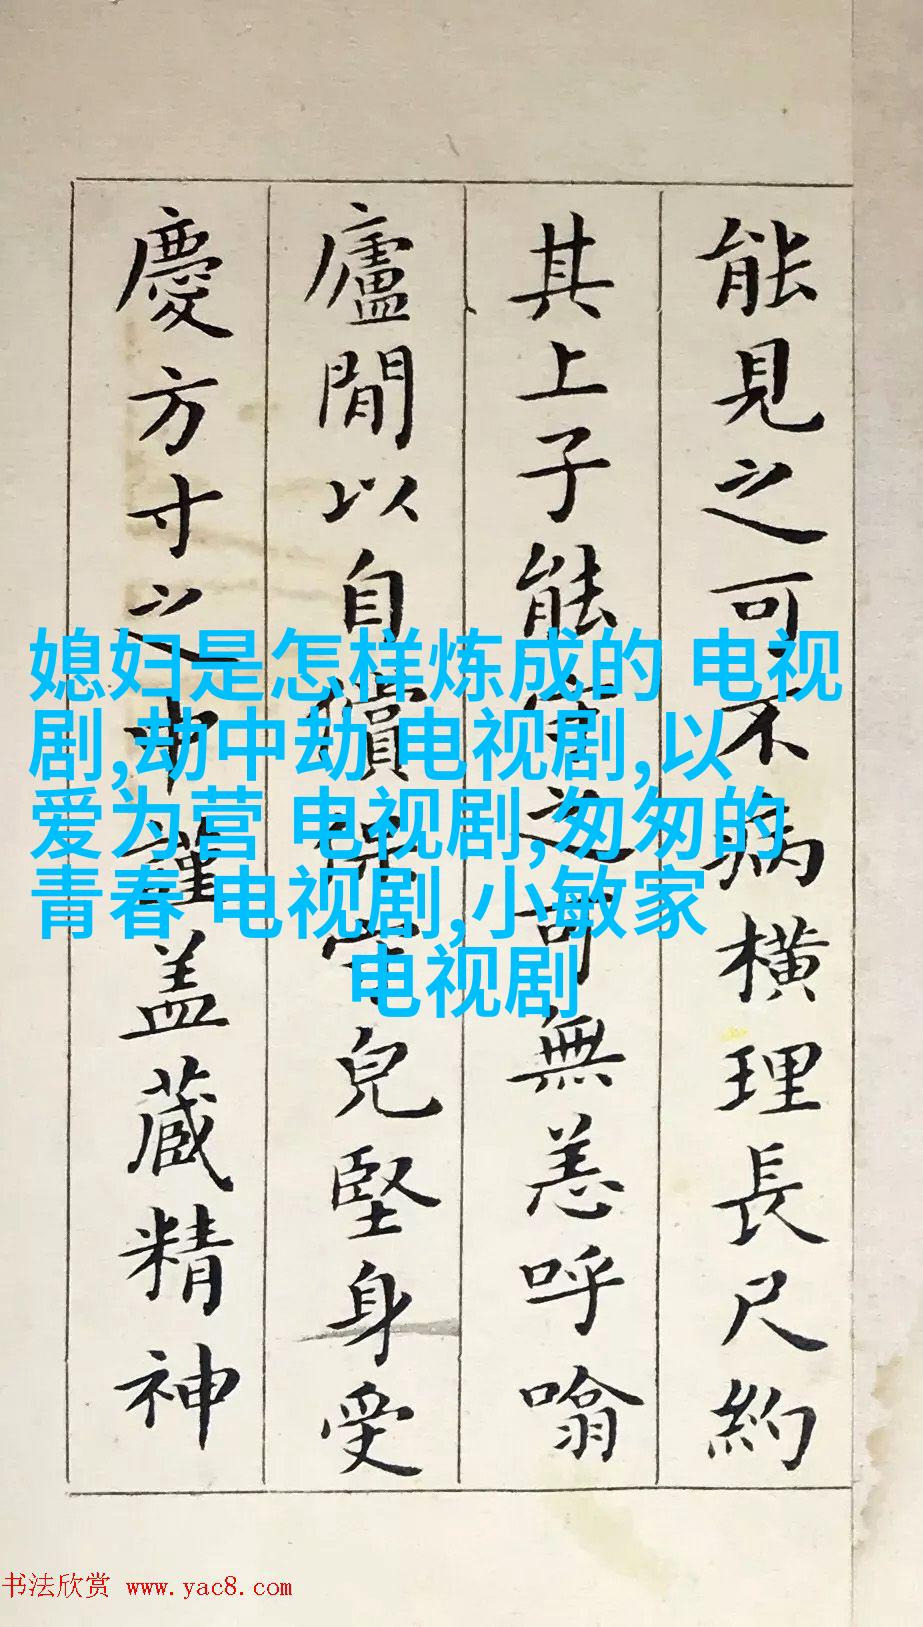 能見之可不病橫理長尺約
其上子能守之可無恙呼噏
廬間以自償保守兒堅身受
慶方寸之中謹盖藏精神
媳妇是怎样炼成的 电视
剧,劫中劫 电视剧,以
爱为营 电视剧,匆匆的
青春 电视剧,小敏家
电视剧
书法欣赏 www.yac8.com